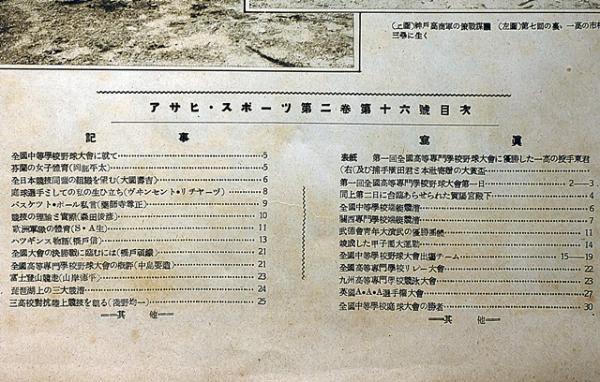 (上圖)神戸高商軍の策戰謀議 (左圖)第七回の裏、一高の市村
三壘に生く
アサヒ・スポーツ第二卷第十六號目次
記事
全國中等學校野球大會に就て 5
芬蘭の女子體育(岡部平太) 5
全日本競技同盟の組織を望む(大國壽吉) 6
庭球選手としての私の生ひ立ち(ヴキンセント・リチヤーヅ) 8
バスケツト・ボール私言(藥師寺尊正) 9
競技の理論と實際(森田俊彦) 10
歐洲軍級の體育(S・A生) 11
ハツギンス物語(橋戸信) 13
全國大會の挽勝戰に臨むには(橋戸頑鐵) 21
全國高等專門學校野球大會の概評(中島要造) 21
富士登山競走(山岸德平) 23
琵琶湖上の三大競漕 24
三高校對抗陸上競技を觀る(淺野均一) 25
──其他──
寫眞
表紙 第一回全國高等專門學校野球大會に優勝した一高の投手東君
(右)及び捕手横田君と本社寄贈の大賞盃
第一回全國高等專門學校野球大會第一日 2―3
同上第二日に台臨あらせられた賀陽宮殿下 4
全國中等學校端艇競漕 6
關西專門學校端艇競漕 7
武德會靑年大演武の優勝團體 11
燒潰した甲子園大運動 14
全國中等學校野球大會出場チーム 15―19
全國高等專門學校リレー大會 22
九州高等專門學校競泳大會 23
英國A・A・A選手權大會 27
全國中等學校庭球大會の勝者 30
──其他──